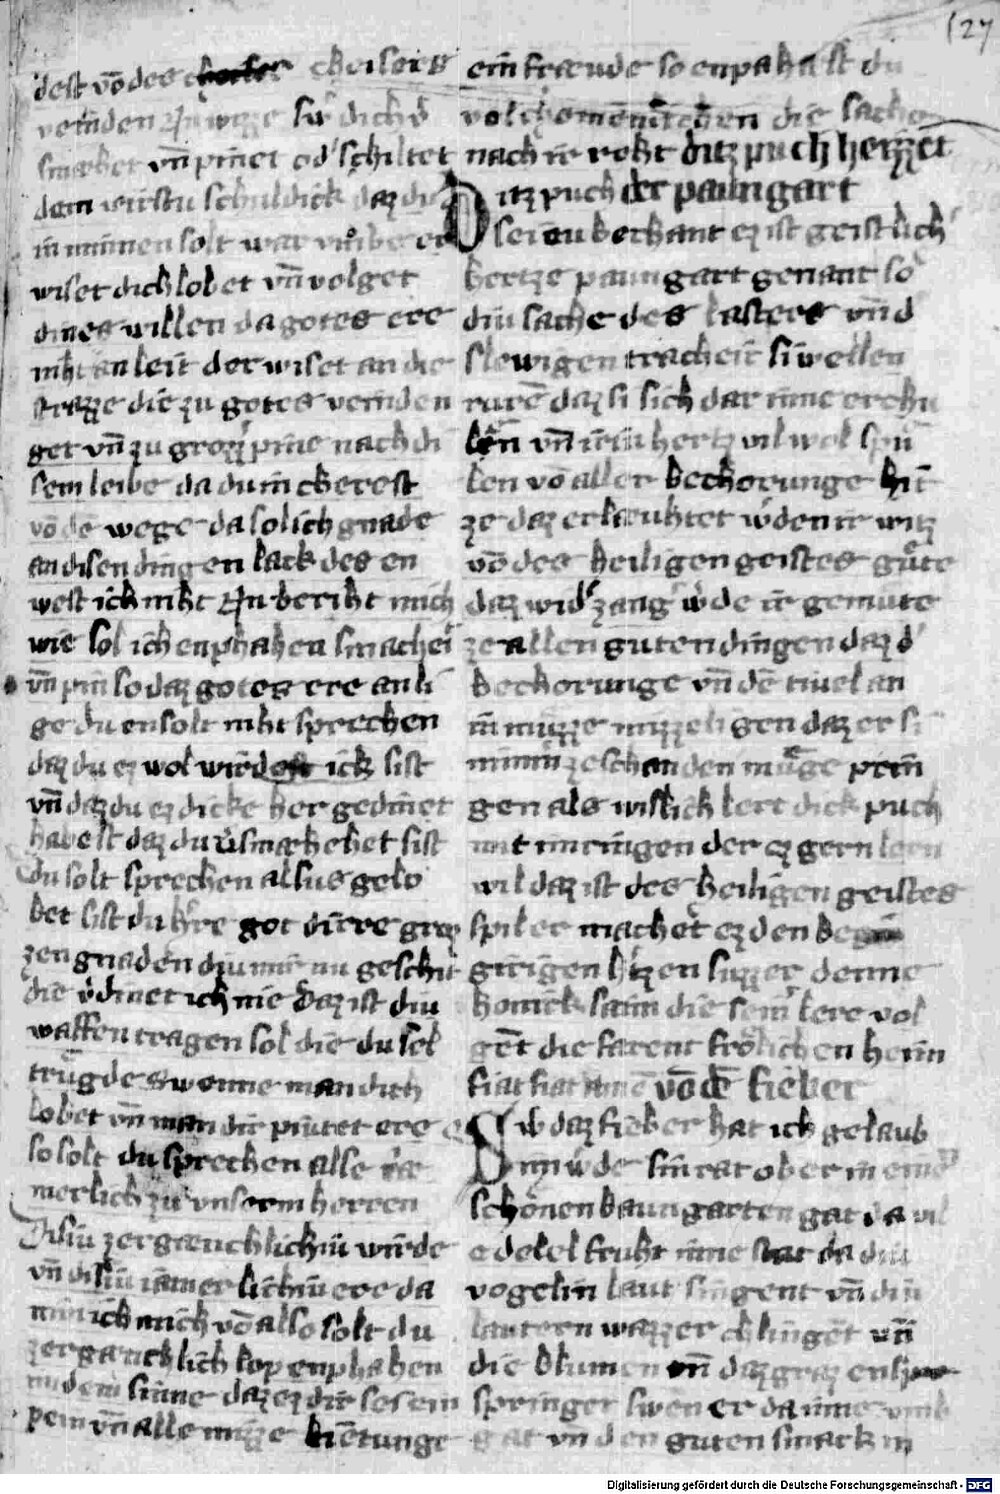 127
dest vō des cheisers
veinden Nu wizze swˢ dich dˢ
smæhet vn̄ pinet odˢ schiltet
dem wirstu schuldick daz du
in minnen solt war vmbe er
wiset dich lobet vn̄ volget
dines willen da gotes ere
niht an leit der wiset an die
strazze die zu gotes veinden
get vn̄ zu grozzˢ pine nach di
sem leibe da du in cherest
vō dē wege da solich gnade
an disen dingen lack des en
west ich niht Nu beriht mich
wie sol ich enphahen smacheit
vn̄ pin so daz gotes ere an li
ge du ensolt niht sprechen
daz du ez wol wirdick sist
vn̄ daz du ez dicke her gedinet
habest daz du vˢsmæhehet sist
du solt sprechen alsus gelo
bet sist du hˢre got dirre groz
zen gnaden diu mir nu geschit
die vˢdinet ich nie daz ist diu
waffen tragen sol die du sel
trügde Swenne man dich
lobet vn̄ man dir piutet ere
so solt du sprechen alle
merlich zu vnserm herren
Disiu zergænchlichiu wirde
vn̄ disiu iamerlichiu ere da
nim ich mich vō also solt du
zergænchlich lop enphahen
in dem sinne daz ez dir si ein
pein vn̄ alle mizze bietunge
ein freude so enpahast du
volchomenītchen die sache
nach ir reht ditz puch heizzet
Ditz puch der paumgart
sei eu bechant ez ist geistlichˢ
hertze paumgart genant so
diu sache des lasters vn̄ dˢ
slewigen tracheit si wellen
rurē daz si sich dar inne erchu
len vn̄ ir iu hertz vil wol spu
len vō aller bechorunge hit
ze daz erlæuhtet wˢden ir witz
vō des heiligen geistes gute
daz widˢzang wˢde ir gemute
ze allen guten dingen daz dˢ
bechorunge vn̄ dē tiuel an
in muzze mizzeligen daz er si
nimmˢ ze schanden muge prin
gen als wislich lert dick puch
mit
der ez gern lern
wil daz ist des heiligen geistes
spiler machet ez den
girigen hˢtzen suzzer denne
honick saim die seinˢ lere vol
gēt die farent frölichen heim
fiat fiat amē vō dē fieber
Swˢ daz fieber hat ich gelaub
im wˢde sin rat ober in einē
schönen baumgarten gat da vil
edelel fruht inne stat da diu
vogelin laut singent vn̄ diu
lautern wazzer chlingēt vn̄
die blumen vn̄ daz graz ents
springet swen er da inne vmb
gat vn̄ den guten smack in
Digitalisierung gefördert durch die Deutsche Forschungsgemeinschaft - DFG